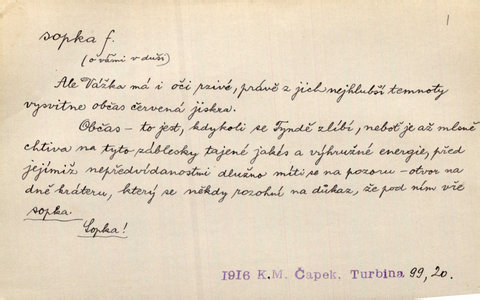 1
sopka f.
(o vášni v duši)
Ale Vážka má i oči rzivé, právě z jich nejhlubší temnoty
vysvitne občas červená jiskra.
Občas – to jest, kdykoli se Tyndě zlíbí, neboť je až mlsně
chtiva na tyto záblesky tajené jakés a výhružné energie, před
jejímiž nepředvídanostmi dlužno míti se na pozoru – otvor na
dně kráteru, který se někdy rozohní na důkaz, že pod ním vře
sopka.
Sopka!
1916 K.M. Čapek, Turbina 99, 20.